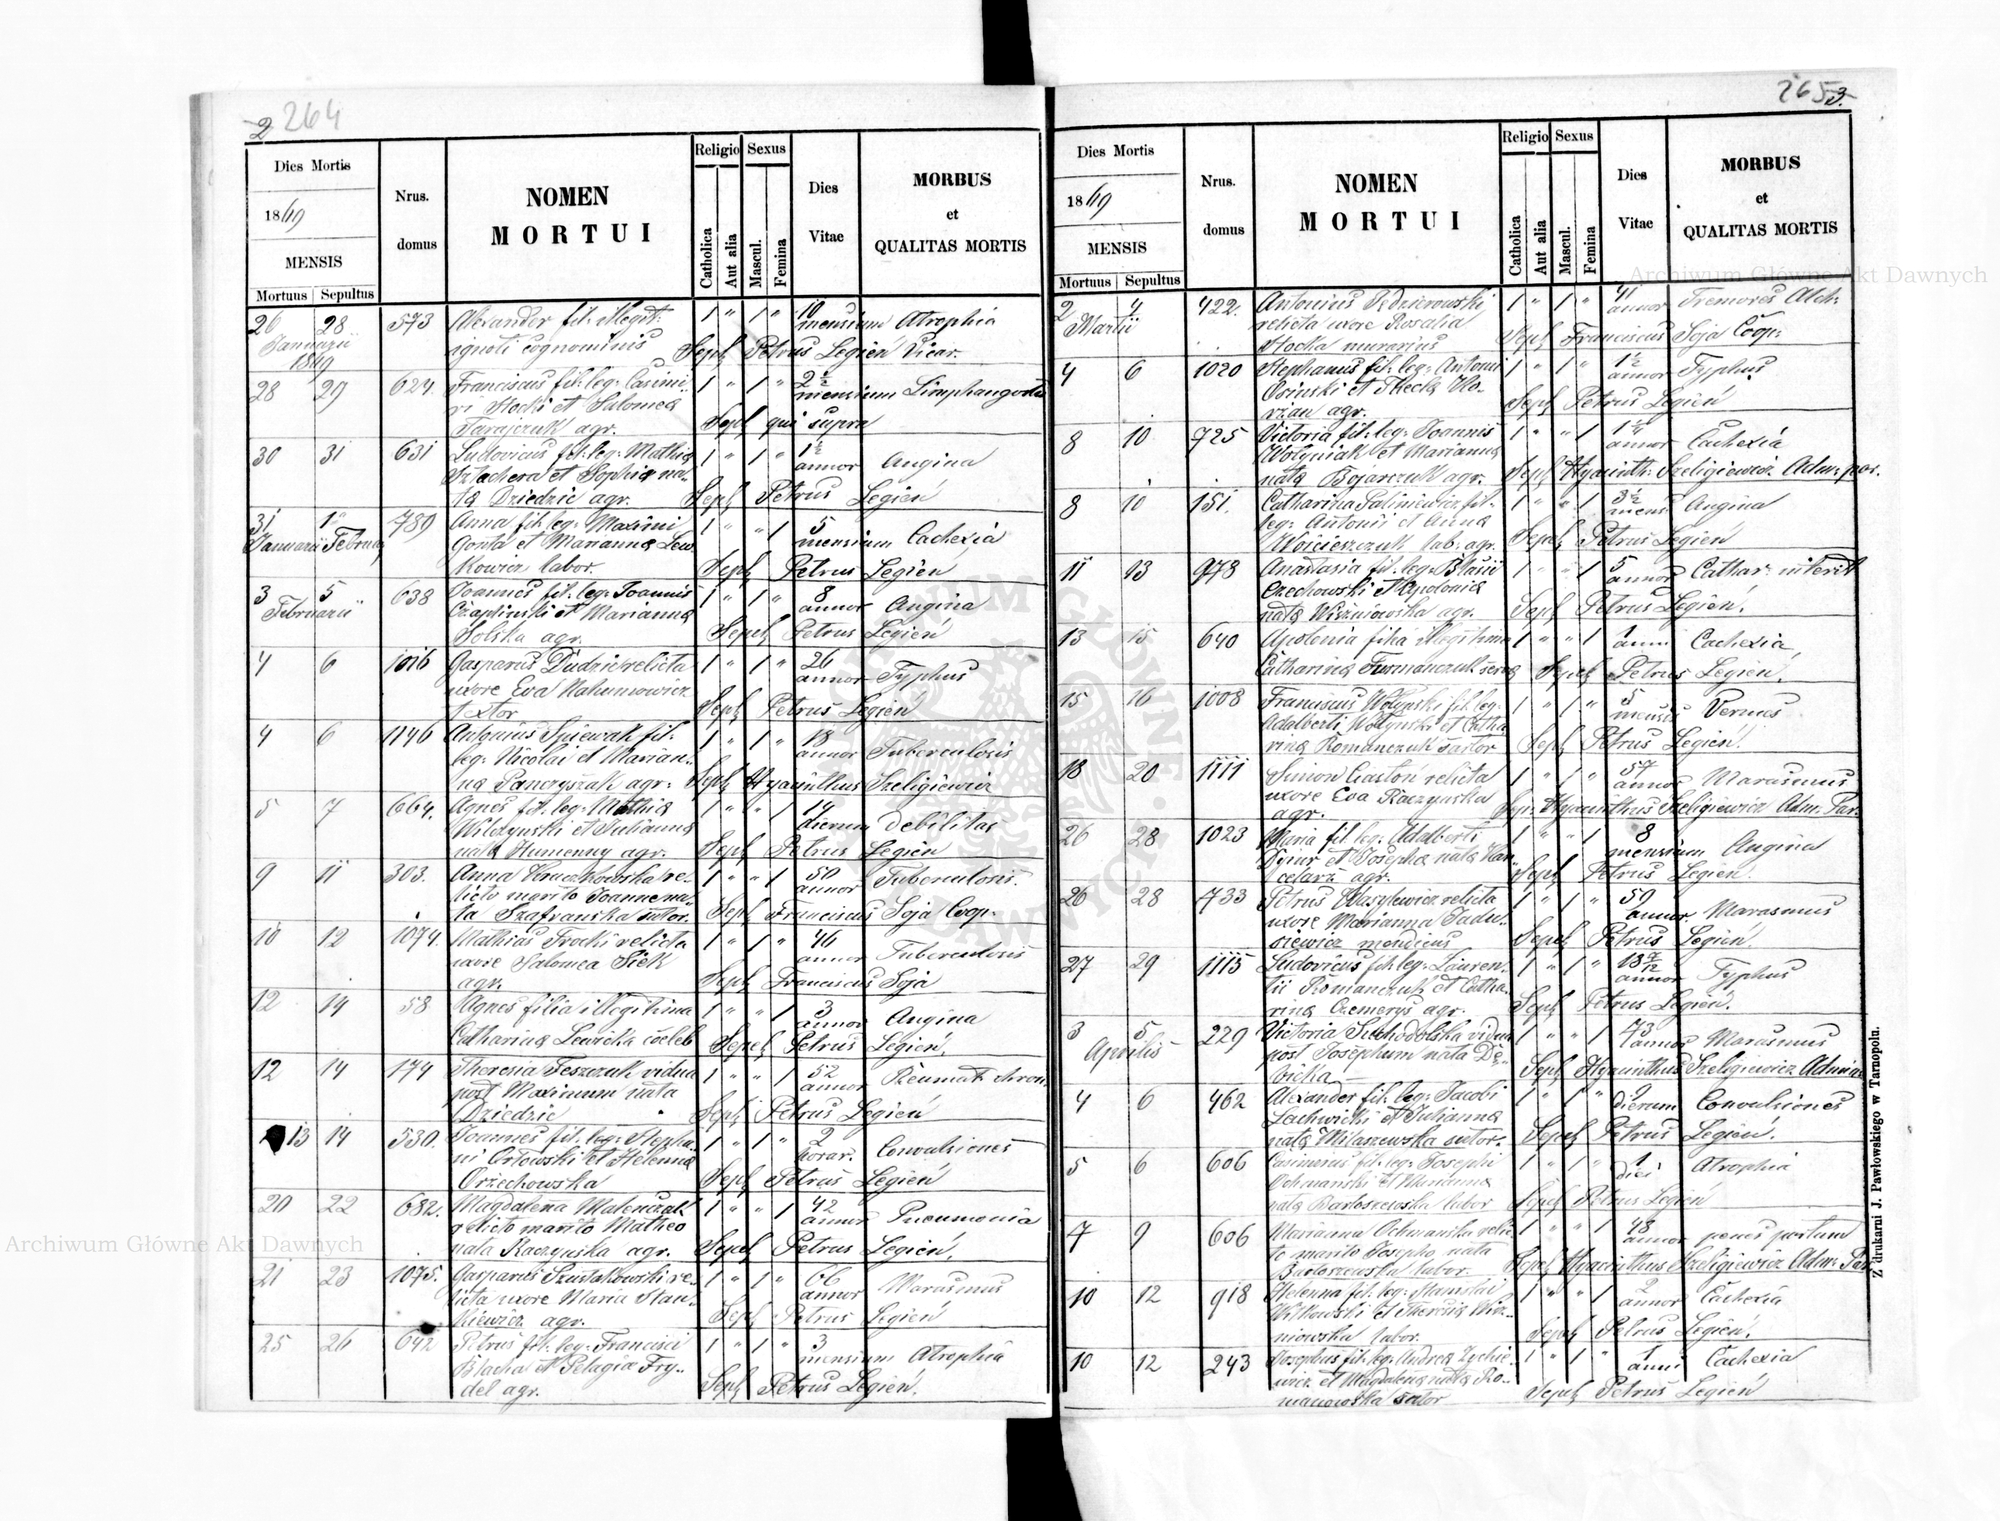 2 264
Dies Mortis
1869
MENSIS
Mortuus Sepultus
Nrus.
domus
NOMEN
MORTUI
Religio
Catholica
Aut alia
Sexus
Mascul.
Femina
Dies
Vitae
MORBUS
et
QUALITAS MORTIS
26 28 573 Alexander fil. illegit: 1 " 1 " 10
Januarii ignoti cognominis mensium Atrophia
1869 Sep: Petrus Legień Vicar.
28 29 624 Franciscus fil: leg: Casimi- 1 " 1 " 2 1/2
ri Stocki et Salomea mensium
agr. Sep: qui supra
30 31 631 Ludovicus fil: leg: Mathia 1 " 1 " 1 1/2
et Sophia na- annor Angina
ta Dziedzic agr. Sep: Petrus Legień
31 1 789 Anna fil: leg: Maximi 1 " " 1 5
Januarii Februarii Gonta et Marianna Lew mensium Cachexia
kowicz labor. Sep: Petrus Legień
3 5 638 Joannes fil: leg: Joannis 1 " 1 " 8
Februarii Czaplinski et Marianna annor Angina
Solska agr. Sepel: Petrus Legień
4 6 1016 Gasparus Dudzic relicta 1 " 1 " 26
uxore Eva Nahumowicz annor Typhus
textor Sep: Petrus Legień
4 6 1146 Antonius Spiewak fil: 1 " 1 " 18
leg: Nicolai et Marian- annor Tuberculosis
na agr: Sep: Hyacinthus Szeligiewicz
5 7 664. Agnes fil: leg: Mathia 1 " " 1 14
Wilczynski et Julianna dierum Debilitas
nata Humenny agr. Sep: Petrus Legień
9 11 303. Anna Kruczkowska re- 1 " " 1 50
licto marito Joanne na- annor Tuberculosis.
ta Szafranska sutor. Sep: Franciscus Soja Coop.
10 12 1074. Mathias Trocki relicta 1 " 1 " 46
uxore Salomea Siek annor Tuberculosis
agr. Sep: Franciscus Soja
12 14 58 Agnes filia illegitima 1 " " 1 3
annor Angina
Catharina Lewicka coeleb Sepel: Petrus Legień,
12 14 174 Theresia Teszczuk vidua 1 " " 1 52
post Maximum nata annor Rheumat. chron.
Dziedzic Sep: Petrus Legień
13 14 530. Joannes fil: leg: Stepha- 1 " 1 " 2
ni Orłowski et Helenna horar. Convulsiones
Orzechowska Sep: Petrus Legień
20 22 682. Magdalena Malenczak 1 " " 1 42
relicto marito Matheo annor Pneumonia
nata Raczynska agr. Sepel: Petrus Legień,
21 23 1075. Gasparus Szustakowski re- 1 " 1 " 66
licta uxore Maria Stan- annor Marasmus
kiewicz agr. Sep: Petrus Legień
25 26 642 Petrus fil: leg: Francisci 1 " 1 " 3
Blacha et Pelagia Fry- mensium Atrophia
del agr. Sep: Petrus Legień.
265 3
Dies Mortis
1869
MENSIS
Mortuus Sepultus
Nrus.
domus
NOMEN
MORTUI
Religio
Catholica
Aut alia
Sexus
Mascul.
Femina
Dies
Vitae
MORBUS
et
QUALITAS MORTIS
2 4 422. Antonius 1 " 1 " 41
Martii relicta uxore Rosalia annor Tremores Alch:
Stocka murarius Sep: Franciscus Soja Coop.
4 6 1020 Stephanus fil: leg: Antoni 1 " 1 " 1 1/2
Osinski et Thecla Ko- annor Typhus
rzan agr. Sep: Petrus Legień
8 10 725 Victoria fil: leg: Joannis 1 " " 1
Wołyniak et Marianna annor Cachexia
nata Bojarczuk agr. Sep: Hyacinth: Szeligiewicz Adm: par.
8 10 151. Catharina fil: 1 " " 1 3 1/2
leg: Antonii et Anna mens Angina
Wojcieszczuk lab: agr. Sepel: Petrus Legień
11 13 978 Anastasia fil: leg: Blasii 1 " " 1 5
Orzechowski et Apolonia annor Cathar: interit
nata Wiszniowska agr. Sep: Petrus Legień.
13 15 640 Apolonia filia illegitima 1 " " 1 1
anni Cachexia,
Catharina Furmanczuk Sepel: Petrus Legień.
15 16 1008 Franciscus Wołynski fil: leg: 1 " 1 " 5
Adalberti Wołynski et Catha mensis Vermes
rina Romanczuk Sep: Petrus Legień.
18 20 1111 Simon Gaston relicta 1 " 1 " 57
uxore Eva Raczynska annor Marasmus
agr. Sep: Hyacinthus Szeligiewicz Adm: Par.
26 28 1023 Maria fil: leg: Adalberti 1 " " 1 8
et Josepha nata Kan- mensium Angina
celarz agr. Sep: Petrus Legień.
26 28 733 Petrus Wasylewicz relicta 1 " 1 " 59
uxore Marianna Tadu- annor. Marasmus
siewicz mendicus Sepel: Petrus Legień.
27 29 1115 Ludovicus fil: leg: Lauren- 1 " 1 " 18
tii Romanczuk et Catha- annor Typhus
rina Czemerys agr. Sepel: Petrus Legień.
3 5 229 Victoria Suchodolska vidua 1 " " 1 73
Aprilis post Josephum nata annor Marasmus
Sep: Hyacinthus Szeligiewicz
4 6 462 Alexander fil: leg: Jacobi 1 " 1 " 9
Lachwicki et Julianna dierum Convulsiones
nata Milaszewska sutor. Sepel: Petrus Legień.
5 6 606 Casimirus fil: leg: Josephi 1 " 1 " 1
Ochmanski et Marianna diei Atrophia
nata Bartoszewska labor Sepel: Petrus Legień
7 9 606 Marianna Ochmanska relic- 1 " " 1 48
to marito Josepho nata annor penes partum
Bartoszewska labor. Sepel: Hyacinthus Szeligiewicz Adm: Par.
10 12 918 Helenna fil: leg: Stanislai 1 " " 1 2
Witkowski et Theresia Wisz- annor Cachexia
niowska labor. Sepel: Petrus Legień.
10 12 243 Josephus fil: leg: Andrea Zychie- 1 " 1 " 1
wicz et Magdalena nata Ro- anni Cachexia
manowska sutor Sepel: Petrus Legień
Z drukarni J. Pawłowskiego w Tarnopolu.
Archiwum Główne Akt Dawnych
Archiwum Główne Akt Dawnych
ARCHIWUM GŁÓWNE AKT DAWNYCH